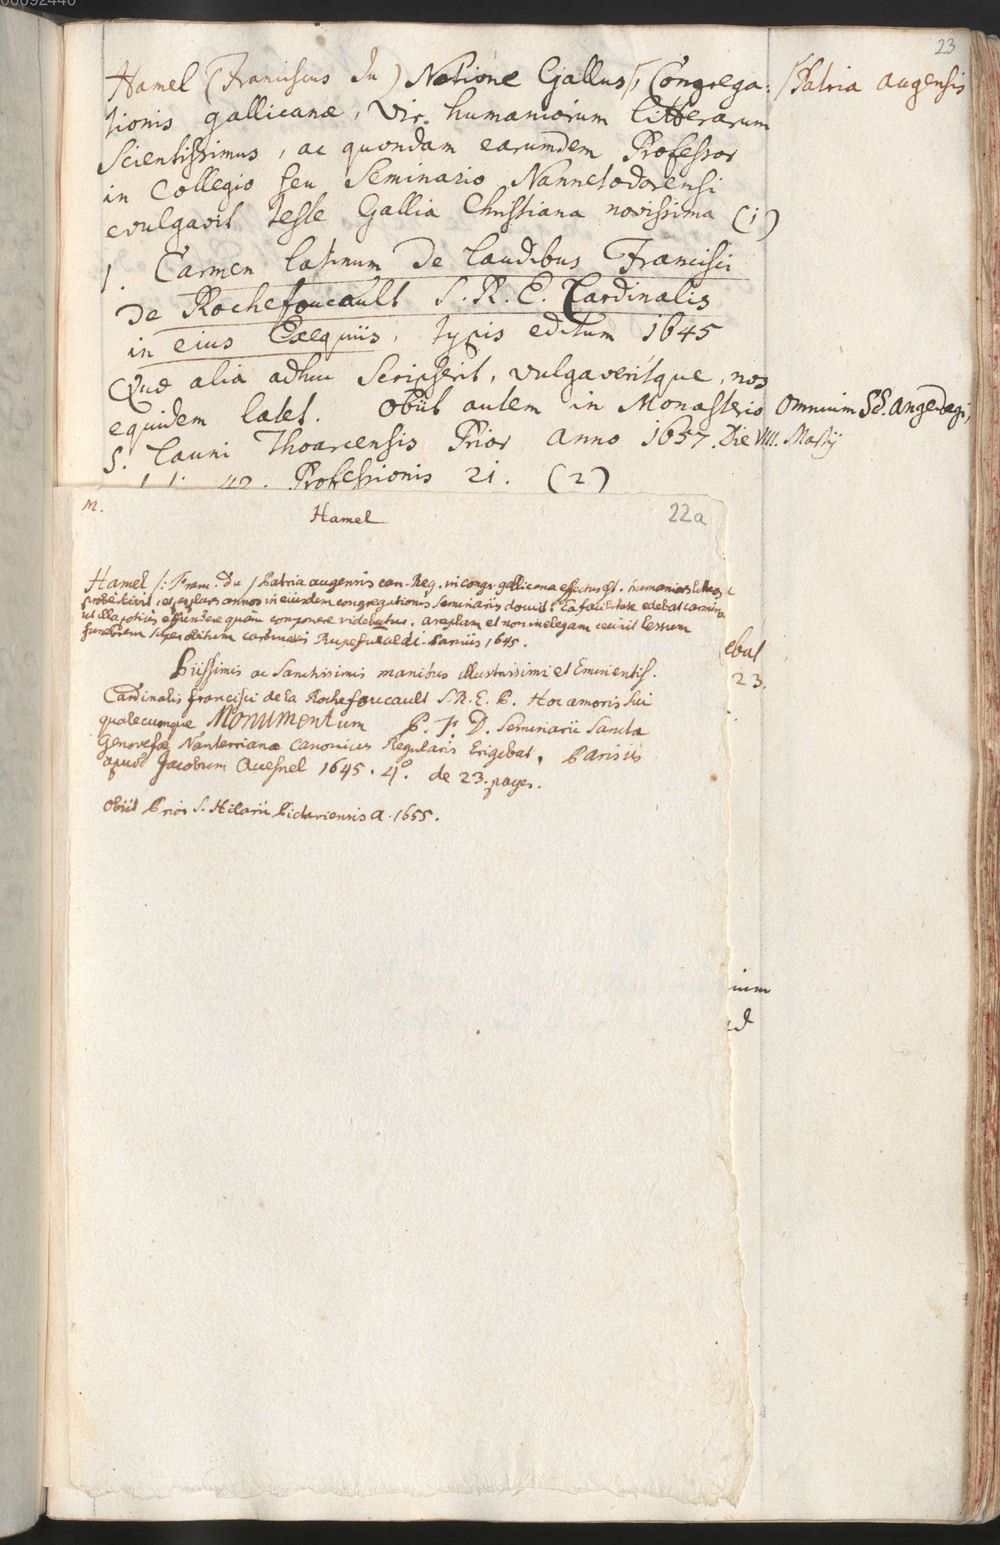 23
Hamel (Franciscus du) Natione Gallus, Congrega: / Patria augensis
tionis gallicanæ, Vir humaniorum litterarum
Scientissimus, ac quondam earumdem Professor
in Collegio seu Seminario Nannetodorensi
evulgavit teste Gallia Christiana novissima (1)
1. Carmen latinum De laudibus Francisci
De Rochefoucault S. R. E. Cardinalis
in eius Exequiis, typis editum 1645
Quæ alia adhuc Scripserit, vulgaveritque, nos
equidem latet. Obiit autem in Monasterio omnium SS. angedagi,
S. Launi Thoarcensis Prior anno 1657. Die VIII. Martij
42. Professionis 21. (2)
M.
Hamel
22a
Hamel /: Franc. du / Patria augensis can. Reg. in congr. gallicana effectus est. humaniores litteras
probe scivit, et plures annos in eiusdem congregationis Seminariis docuit. Ea facultate edebat carmina
ut illa potius effundere quam componere videbatur. amplam et non inelegam cecinit lessum
funebrem super obitum cardinalis Rupefucaldi. Parisiis 1645.
Piissimis ac Sanctissimis manibus illustrissimi et Eminentiss.
Cardinalis francisci de la Rochefoucault S. R. E. P. Hoc amoris sui
qualecumque Monumentum P. F. D. Seminarii Sanctæ
Genovefæ Nanterrianæ Canonicus Regularis Erigebat. Parisiis
apud Jacobum Quesnel 1645. 4º. de 23. pages.
obiit Prior S. Hilarii Pictaviensis a. 1655.
ebat
23.
ium
ad